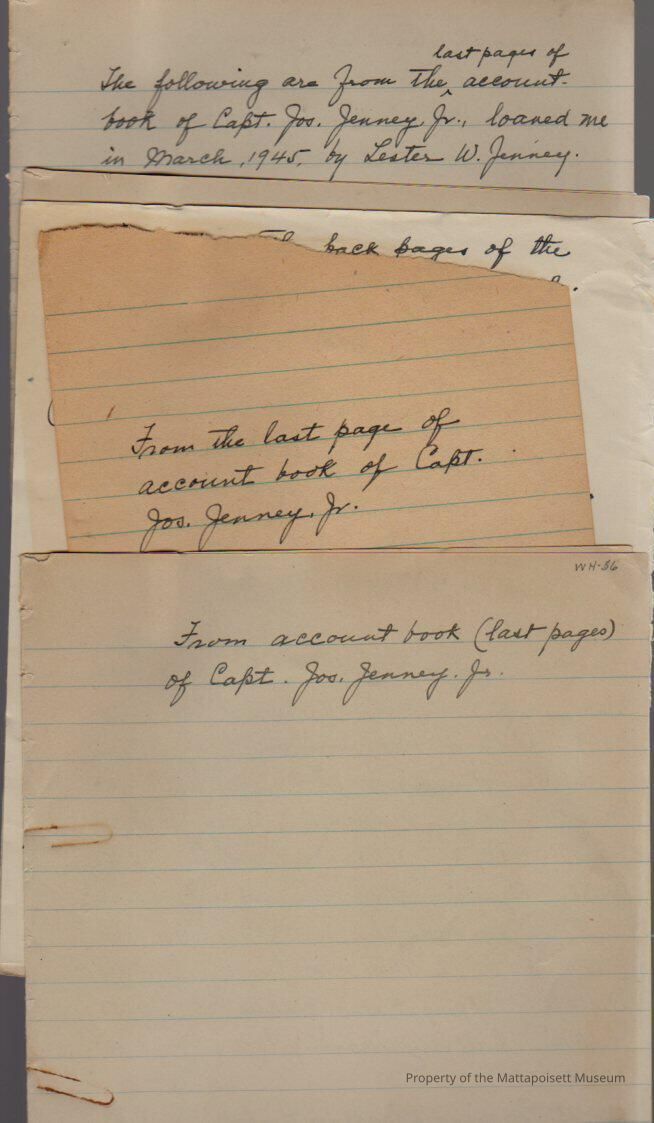 last pages of
The following are from the ‸ account-
book of Capt. Jos. Jenney, Jr., loaned me
in March, 1945, by Lester W. Jenney.
back pages of the
From the last page of
account book of Capt.
Jos. Jenney, Jr.
WH-56
From account book (last pages)
of Capt. Jos. Jenney. Jr.
Property of the Mattapoisett Museum